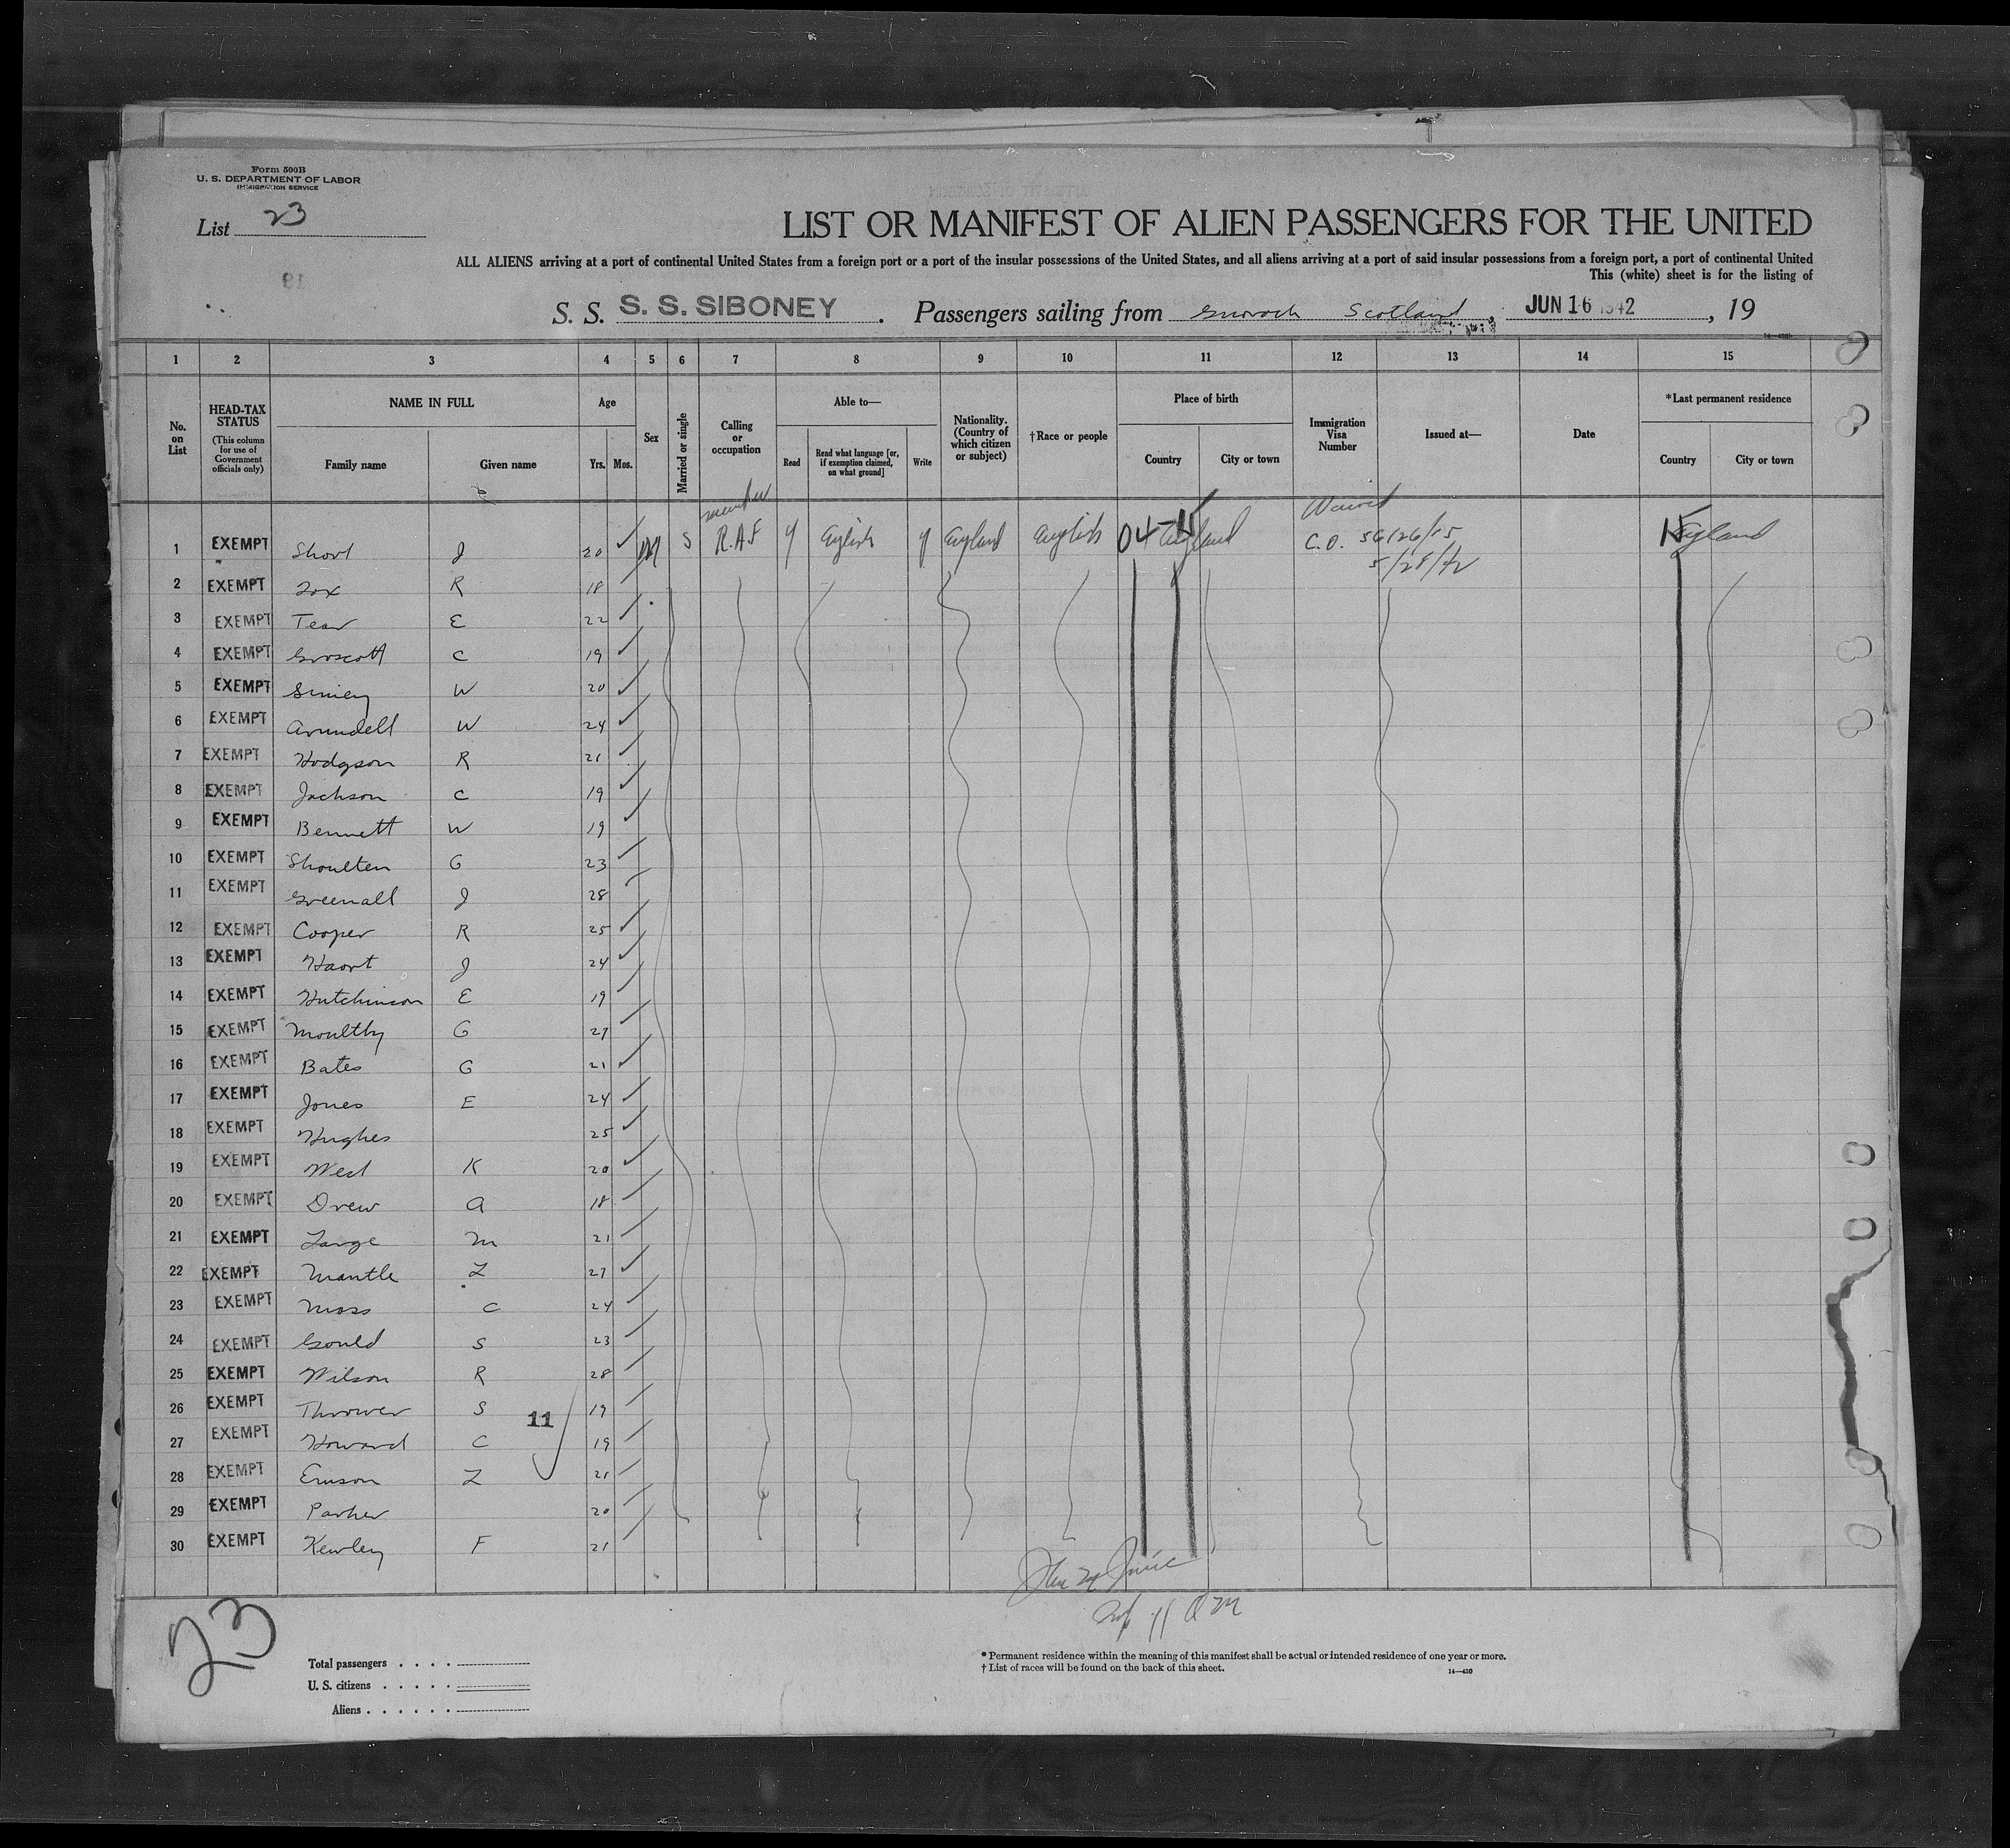 Form 500B
U. S. DEPARTMENT OF LABOR
IMMIGRATION SERVICE
List 23
LIST OR MANIFEST OF ALIEN PASSENGERS FOR THE UNITED
ALL ALIENS arriving at a port of continental United States from a foreign port or a port of the insular possessions of the United States, and all aliens arriving at a port of said insular possessions from a foreign port, a port of continental United
This (white) sheet is for the listing of
S. S. S. S. SIBONEY . Passengers sailing from Gurock Scotland , JUN 16 1942 , 19
1 2 3 4 5 6 7 8 9 10 11 12 13 14 15
No. on List
HEAD-TAX STATUS
(This column for use of Government officials only)
NAME IN FULL
Family name Given name
Age
Yrs. Mos.
Sex
Married or single
Calling or occupation
Able to—
Read
Read what language [or, if exemption claimed, on what ground]
Write
Nationality. (Country of which citizen or subject)
†Race or people
Place of birth
Country City or town
Immigration Visa Number
Issued at—
Date
*Last permanent residence
Country City or town
member Waived
1 EXEMPT Short J 20 M S R.A.F y English y England English 04-15 England C.O. 56126/15 15 England
5/28/42
2 EXEMPT Fox R 18
3 EXEMPT Tear E 22
4 EXEMPT Groscott C 19
5 EXEMPT W 20
6 EXEMPT Arundell W 24
7 EXEMPT Hodgson R 21
8 EXEMPT Jackson C 19
9 EXEMPT Bennett W 19
10 EXEMPT Shoulten G 23
11 EXEMPT Greenall J 28
12 EXEMPT Cooper R 25
13 EXEMPT Haort J 24
14 EXEMPT Hutchinson E 19
15 EXEMPT Moulthy G 27
16 EXEMPT Bates G 21
17 EXEMPT Jones E 24
18 EXEMPT Hughes 25
19 EXEMPT West K 20
20 EXEMPT Drew A 18
21 EXEMPT Large M 21
22 EXEMPT Mantle L 27
23 EXEMPT Moss C 24
24 EXEMPT Gould S 23
25 EXEMPT Wilson R 28
26 EXEMPT Thrower S 19
11
27 EXEMPT Howard C 19
28 EXEMPT Emson L 21
29 EXEMPT Parker 20
30 EXEMPT Kewley F 21
23
Total passengers
U. S. citizens
Aliens
* Permanent residence within the meaning of this manifest shall be actual or intended residence of one year or more.
† List of races will be found on the back of this sheet.
14—430